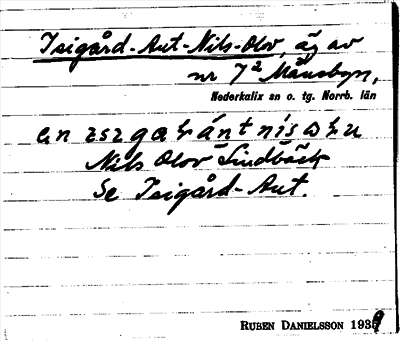 Isigård-Ant-Nils-Olov, äg av
nr 7² Månsbyn,
Nederkalix sn o. tg. Norrb. län
Nils Olov Lindbäck
Se Isigård-Ant.
RUBEN DANIELSSON 1939